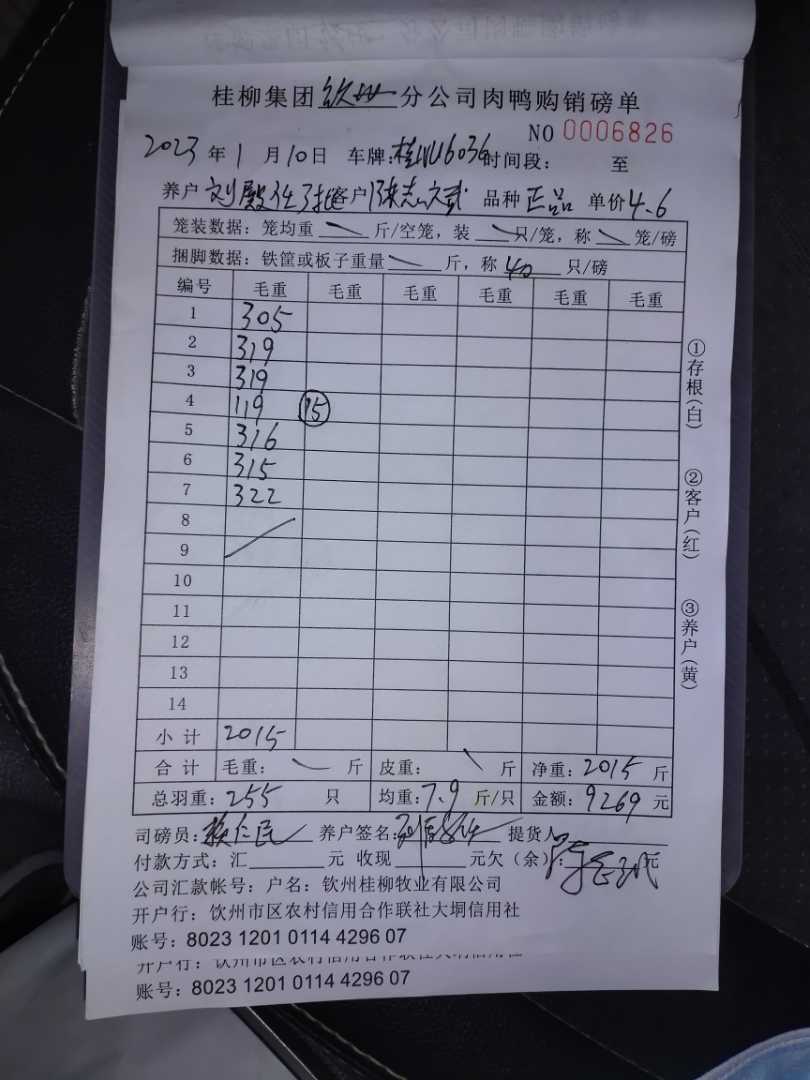 桂柳集团 钦州 分公司肉鸭购销磅单
NO 0006826
2023 年 1 月 10 日 车牌:桂U6036 时间段: 至
养户 刘殿任 客户 陈志斌 品种 正品 单价 4.6
笼装数据:笼均重 斤/空笼,装 只/笼,称 笼/磅
捆脚数据:铁筐或板子重量 斤,称 40 只/磅
编号 毛重 毛重 毛重 毛重 毛重 毛重
1 305
2 319
3 319
4 119 15
5 316
6 315
7 322
8
9
10
11
12
13
14
小计 2015
合计 毛重: 斤 皮重: 斤 净重:2015 斤
总羽重:255 只 均重:7.9 斤/只 金额:9269 元
①存根(白)
②客户(红)
③养户(黄)
司磅员: 养户签名: 提货人
付款方式:汇 元 收现 元欠(余): 元
公司汇款帐号:户名:钦州桂柳牧业有限公司
开户行:饮州市区农村信用合作联社大垌信用社
账号:8023 1201 0114 4296 07
开户行:饮州市区农村信用合作联社大垌信用社
账号:8023 1201 0114 4296 07